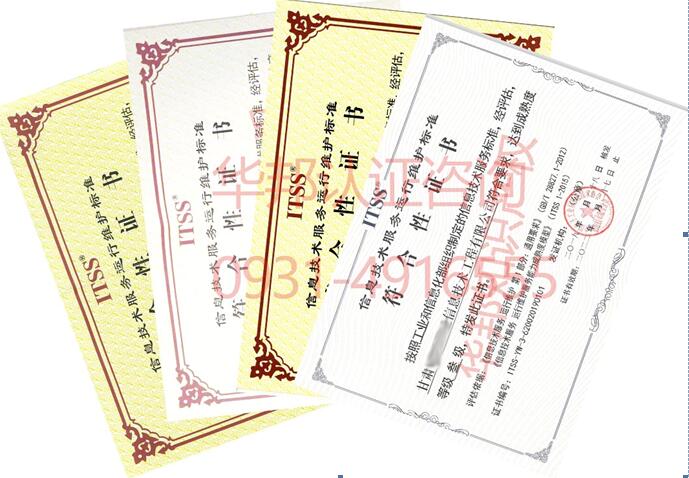 ITSS®
信息技术服务运行维护标准
合性证书
经评估,
ITSS®
信息技术服务运行维护标准
符合性证书
服务标准, 经评估,
ITSS®
信息技术服务运行维护标准
合性证书
信息技术服务运行维护标准
符合性证书
按照工业和信息化部组织制定的信息技术服务标准, 经评估,
甘肃 信息技术工程有限公司符合要求, 达到成熟度
等级叁级, 特发此证书。
评估依据:《信息技术服务 运行维护 第1部分:通用要求》(GB/T 28827.1-2012)
《信息技术服务 运行维护服务能力成熟度模型》(ITSS.1-2015)
证书编号: ITSS-YW-3-620020190101
发证机构:
证书有效期:
华邦认证咨询